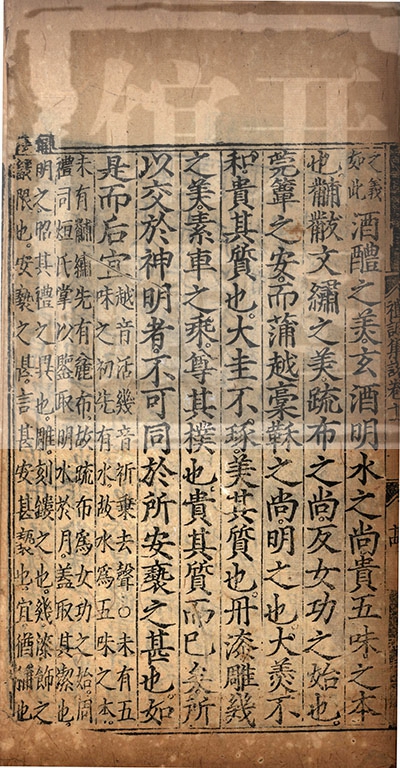 之義
如此
酒醴之美玄酒明水之尚貴五味之本
也黼黻文繡之美疏布之尚反女功之始也
莞簟之安而蒲越槀鞂之尚明之也大羹不
和貴其質也大圭不琢美其質也丹漆雕幾
之美素車之乘尊其樸也貴其質而已矣所
以交於神明者不可同於所安褻之甚也如
是而后宜
越音活幾音祈乘去聲○未有五
味之初先有水故水為五味之本
未有黼繡先有麤布故疏布為女功之始周
禮司烜氏掌以鑒取明水於月蓋取其潔也
明之昭其禮之異也雕刻鏤之也幾漆飾之
限也安褻之甚言甚安甚褻也宜猶稱也